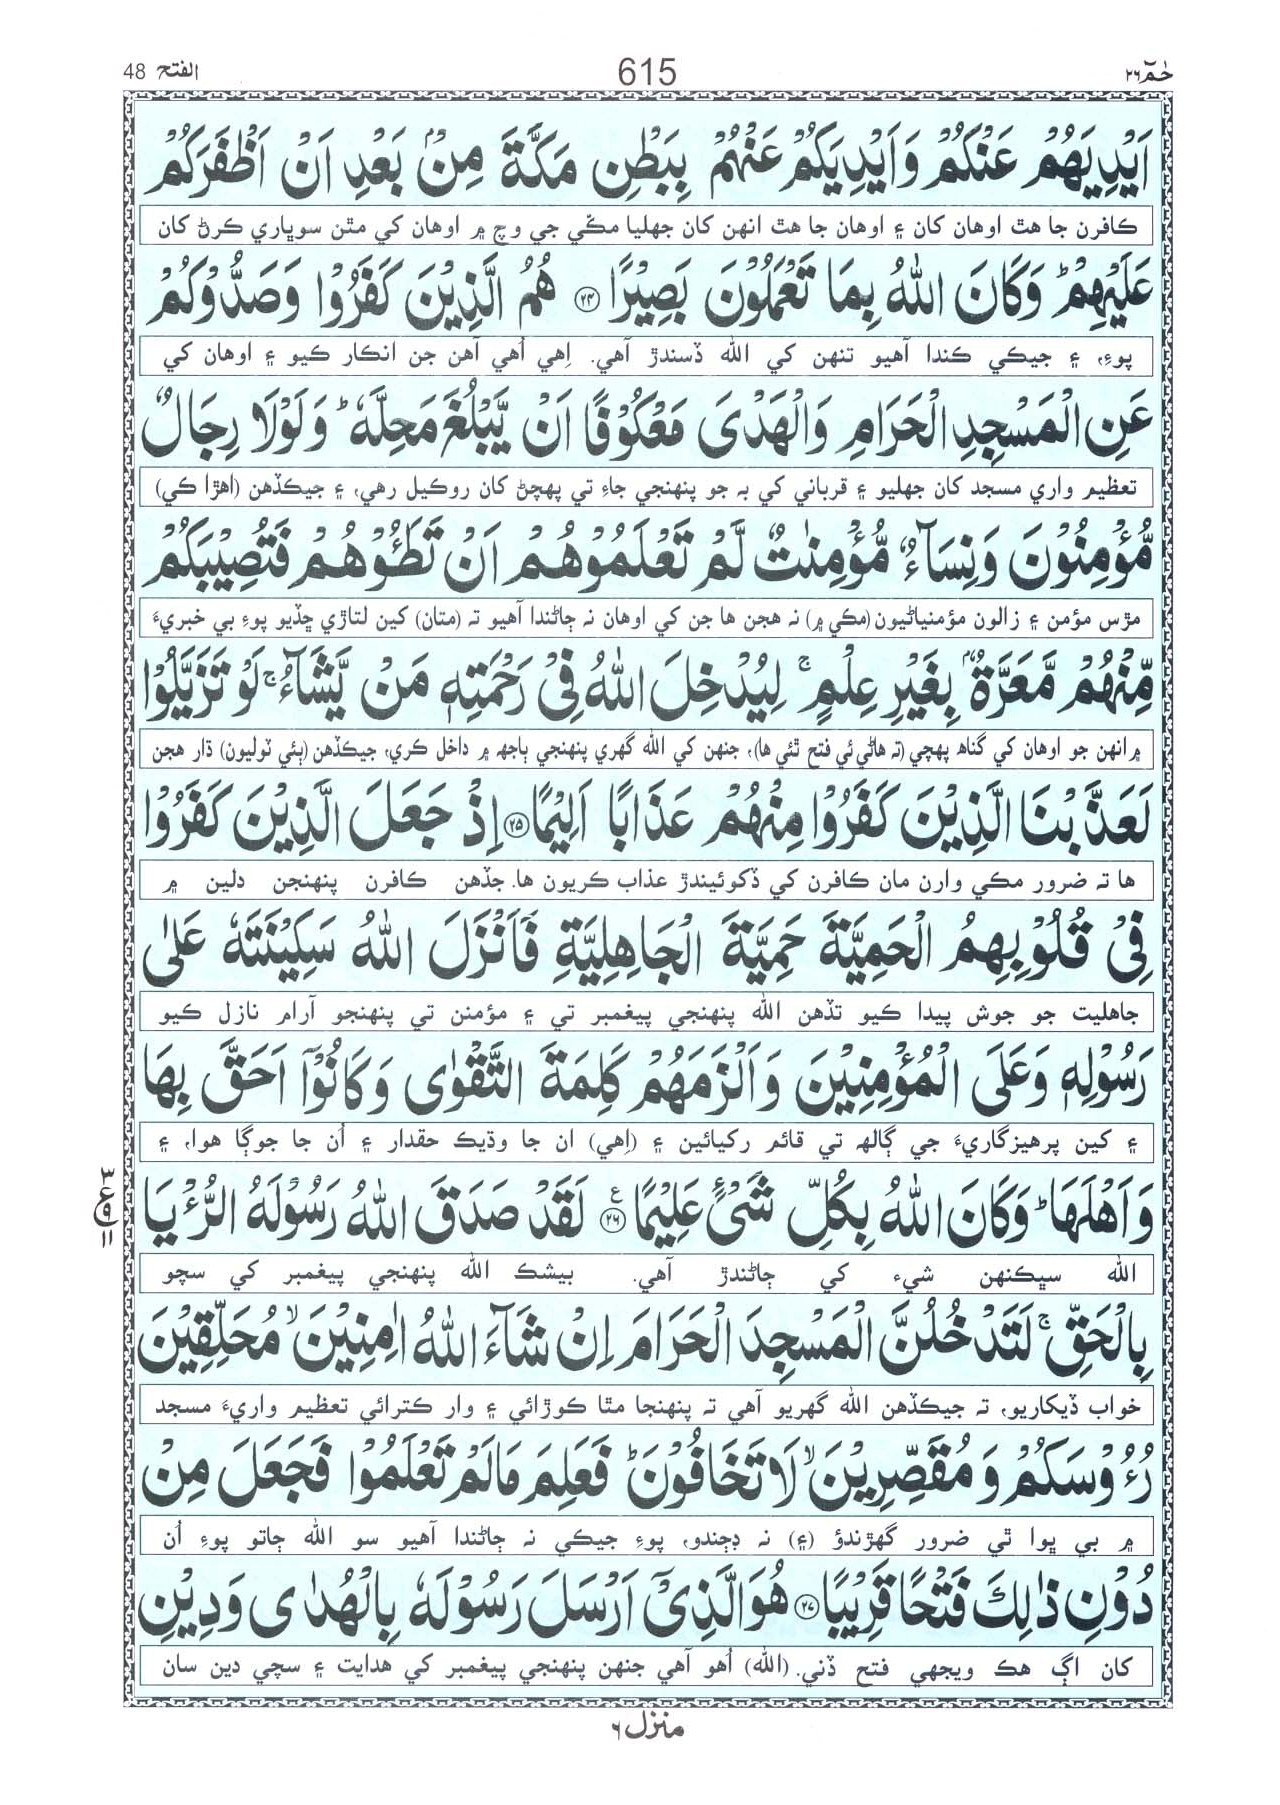 حٰمٓ ٢٦ 615 الفتح 48
اَيْدِيَهُمْ عَنْكُمْ وَاَيْدِيَكُمْ عَنْهُمْ بِبَطْنِ مَكَّةَ مِنْۢ بَعْدِ اَنْ اَظْفَرَكُمْ
ڪافرن جا هٿ اوهان کان ۽ اوهان جا هٿ انهن کان جهليا مڪّي جي وچ ۾ اوهان کي مٿن سوڀاري ڪرڻ کان
عَلَيْهِمْ ؕ وَكَانَ اللّٰهُ بِمَا تَعْمَلُوْنَ بَصِيْرًا ﴿۲۴﴾ هُمُ الَّذِيْنَ كَفَرُوْا وَصَدُّوْكُمْ
پوءِ، ۽ جيڪي ڪندا آهيو تنهن کي الله ڏسندڙ آهي. اِهي اُهي آهن جن انڪار ڪيو ۽ اوهان کي
عَنِ الْمَسْجِدِ الْحَرَامِ وَالْهَدْىَ مَعْكُوْفًا اَنْ يَّبْلُغَ مَحِلَّهٗ ؕ وَلَوْلَا رِجَالٌ
تعظيم واري مسجد کان جهليو ۽ قرباني کي بہ جو پنهنجي جاءِ تي پهچڻ کان روڪيل رهي، ۽ جيڪڏهن (اهڙا ڪي)
مُّؤْمِنُوْنَ وَنِسَآءٌ مُّؤْمِنٰتٌ لَّمْ تَعْلَمُوْهُمْ اَنْ تَطَـُٔوْهُمْ فَتُصِيْبَكُمْ
مڙس مؤمن ۽ زالون مؤمنياڻيون (مڪي ۾) نہ هجن ها جن کي اوهان نہ ڄاڻندا آهيو تہ (متان) کين لتاڙي ڇڏيو پوءِ بي خبريءَ
مِّنْهُمْ مَّعَرَّةٌۢ بِغَيْرِ عِلْمٍ ۚ لِيُدْخِلَ اللّٰهُ فِىْ رَحْمَتِهٖ مَنْ يَّشَآءُ ۚ لَوْ تَزَيَّلُوْا
۾ انهن جو اوهان کي گناھ پهچي (تہ هاڻي ئي فتح ٿئي ها)، جنهن کي الله گهري پنهنجي ٻاجهہ ۾ داخل ڪري، جيڪڏهن (ٻئي ٽوليون) ڌار هجن
لَعَذَّبْنَا الَّذِيْنَ كَفَرُوْا مِنْهُمْ عَذَابًا اَلِيْمًا ﴿۲۵﴾ اِذْ جَعَلَ الَّذِيْنَ كَفَرُوْا
ها تہ ضرور مڪي وارن مان ڪافرن کي ڏکوئيندڙ عذاب ڪريون ها. جڏهن ڪافرن پنهنجن دلين ۾
فِىْ قُلُوْبِهِمُ الْحَمِيَّةَ حَمِيَّةَ الْجَاهِلِيَّةِ فَاَنْزَلَ اللّٰهُ سَكِيْنَتَهٗ عَلٰى
جاهليت جو جوش پيدا ڪيو تڏهن الله پنهنجي پيغمبر تي ۽ مؤمنن تي پنهنجو آرام نازل ڪيو
رَسُوْلِهٖ وَعَلَى الْمُؤْمِنِيْنَ وَاَلْزَمَهُمْ كَلِمَةَ التَّقْوٰى وَكَانُوْٓا اَحَقَّ بِهَا
۽ کين پرهيزگاريءَ جي ڳالهہ تي قائم رکيائين ۽ (اِهي) ان جا وڌيڪ حقدار ۽ اُن جا جوڳا هوا، ۽
وَاَهْلَهَا ؕ وَكَانَ اللّٰهُ بِكُلِّ شَىْءٍ عَلِيْمًا ﴿۲۶﴾ ع لَقَدْ صَدَقَ اللّٰهُ رَسُوْلَهُ الرُّءْيَا
٣ ع ٩ ١١
الله سڀڪنهن شيء کي ڄاڻندڙ آهي. بيشڪ الله پنهنجي پيغمبر کي سچو
بِالْحَقِّ ۚ لَتَدْخُلُنَّ الْمَسْجِدَ الْحَرَامَ اِنْ شَآءَ اللّٰهُ اٰمِنِيْنَ ۙ مُحَلِّقِيْنَ
خواب ڏيکاريو، تہ جيڪڏهن الله گهريو آهي تہ پنهنجا مٿا ڪوڙائي ۽ وار ڪترائي تعظيم واريءَ مسجد
رُءُوْسَكُمْ وَمُقَصِّرِيْنَ ۙ لَا تَخَافُوْنَ ؕ فَعَلِمَ مَا لَمْ تَعْلَمُوْا فَجَعَلَ مِنْ
۾ بي ڀوا ٿي ضرور گهڙندؤ (۽) نہ ڊڄندو، پوءِ جيڪي نہ ڄاڻندا آهيو سو الله ڄاتو پوءِ اُن
دُوْنِ ذٰلِكَ فَتْحًا قَرِيْبًا ﴿۲۷﴾ هُوَ الَّذِىْٓ اَرْسَلَ رَسُوْلَهٗ بِالْهُدٰى وَدِيْنِ
کان اڳ هڪ ويجهي فتح ڏني. (الله) اُهو آهي جنهن پنهنجي پيغمبر کي هدايت ۽ سچي دين سان
منزل ٦